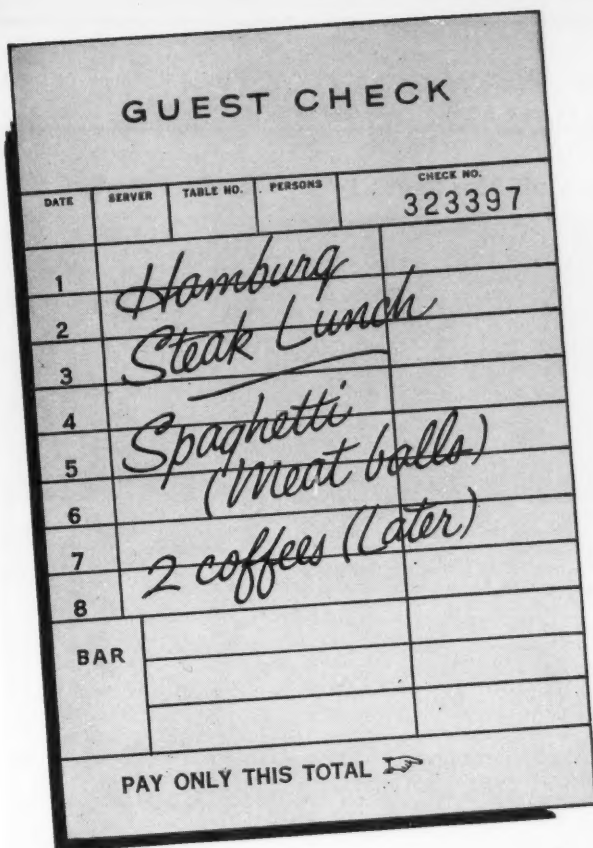 GUEST CHECK
DATE SERVER TABLE NO. PERSONS CHECK NO.
323397
1 Hamburg
2 Steak Lunch
3
4 Spaghetti
5 (Meat balls)
6
7 2 coffees (Later)
8
BAR
PAY ONLY THIS TOTAL ☞